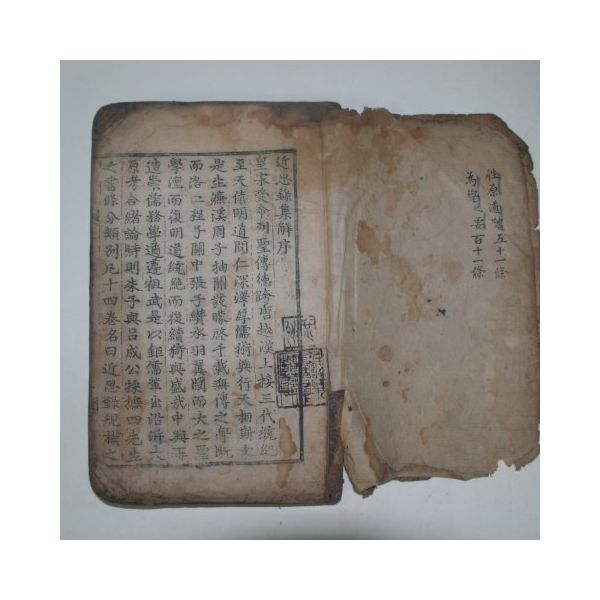 性原道體五十一條
為學之要百十一條
近思錄集解序
皇宋受命列聖傳德跨唐越漢上接三代統紀
至天僖明道間仁深澤厚儒術興行天相斯文
是生濂溪周子抽關發矇啓千載無傳之學既
而洛二程子關中張子纘承羽翼闡而大之聖
學湮而復明道統絶而復續猗與盛哉中興再
造崇儒務學遹遵祖武是以鉅儒輩出沿泝大
原考合緒論時則朱子與呂成公採摭四先生
之書條分類別凡十四卷名曰近思錄規模之